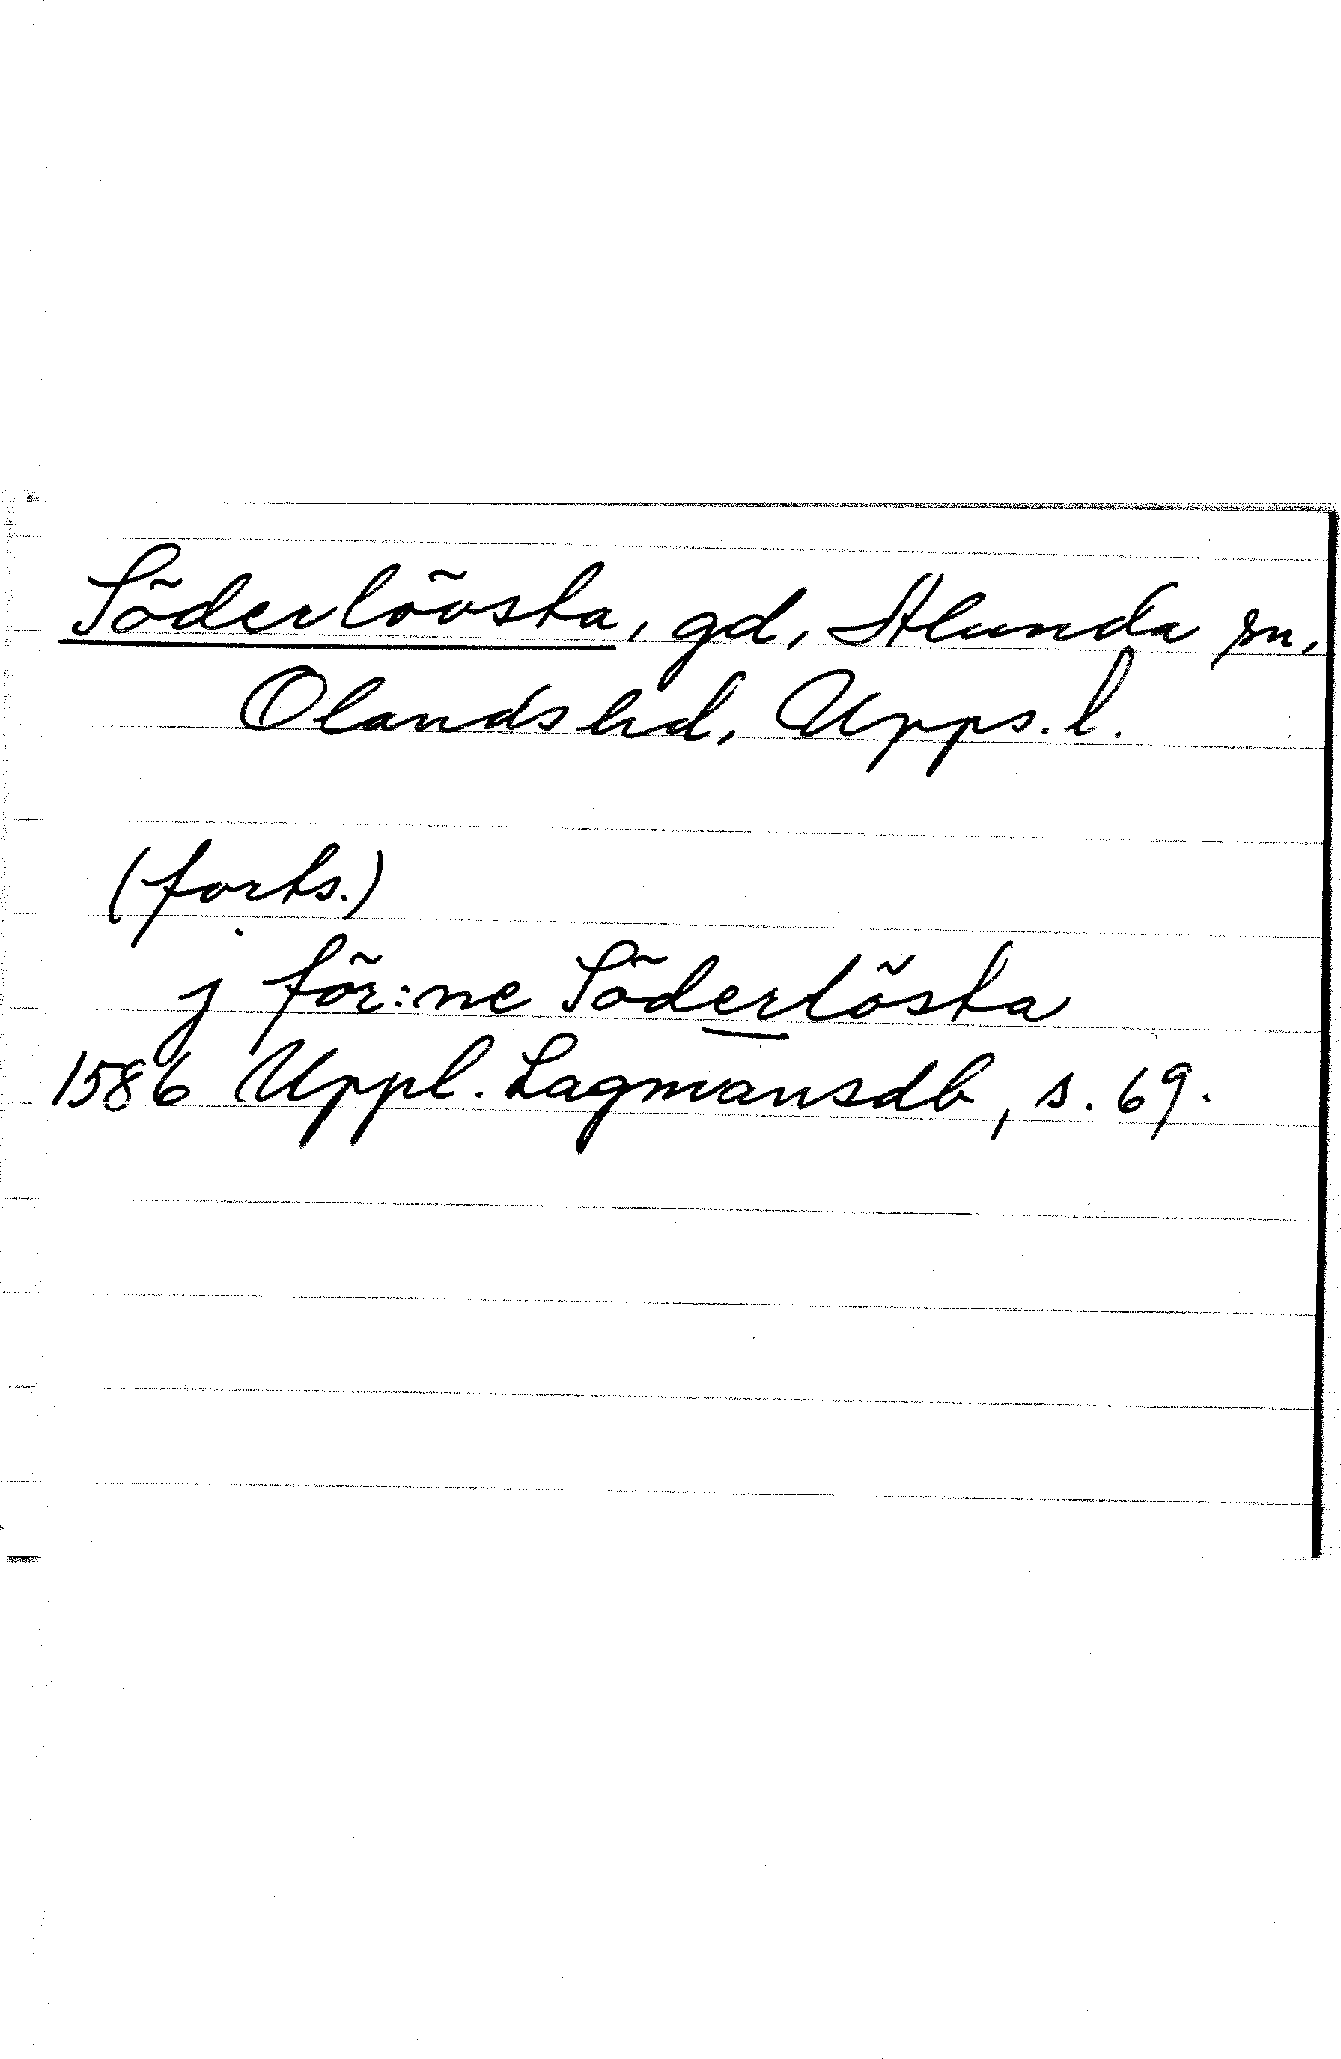 Söderlövsta, gd, Alunda sn,
Olands hd, Upps. l.
(forts.)
j för:ne Söderlösta
1586 Uppl. Lagmansdb, s. 69.